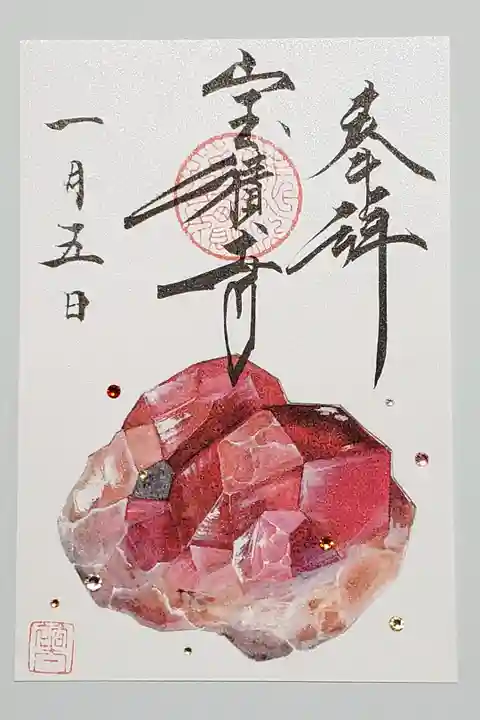 奉拝
宝積寺
一月五日